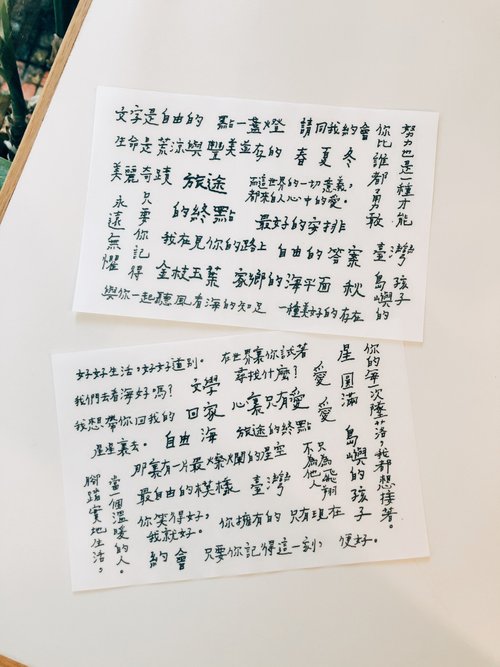 文字是自由的
點一盞燈
請回我約會
你比誰都勇敢
努力也是一種才能
生命是荒涼與豐美並存的
春
夏
冬
美麗奇蹟
旅途的終點
而這世界的一切意義，
都來自人心中的愛。
最好的安排
永遠無懼
只要你記得
我在見你的路上
自由的答案
臺灣
島嶼的孩子
金枝玉葉
家鄉的海平面
秋
與你一起聽風看海的知足
一種美好的存在
好好生活，好好道別。
在世界裏你試著
尋找什麼？
星
圓滿
你的每一次墜落，我都想接著。
我們去看海好嗎？
文學
愛
我想帶你回我的
星星裏去。
回家
心裏只有愛
愛
自由
海
旅途的終點
島嶼的孩子
那裏有一片最燦爛的星空
不只為飛翔
為他人
最自由的模樣
臺灣
當一個溫暖的人。
腳踏實地生活，
你笑得好，
我就好。
你擁有的
只有現在
約會
只要你記得這一刻，
便好。